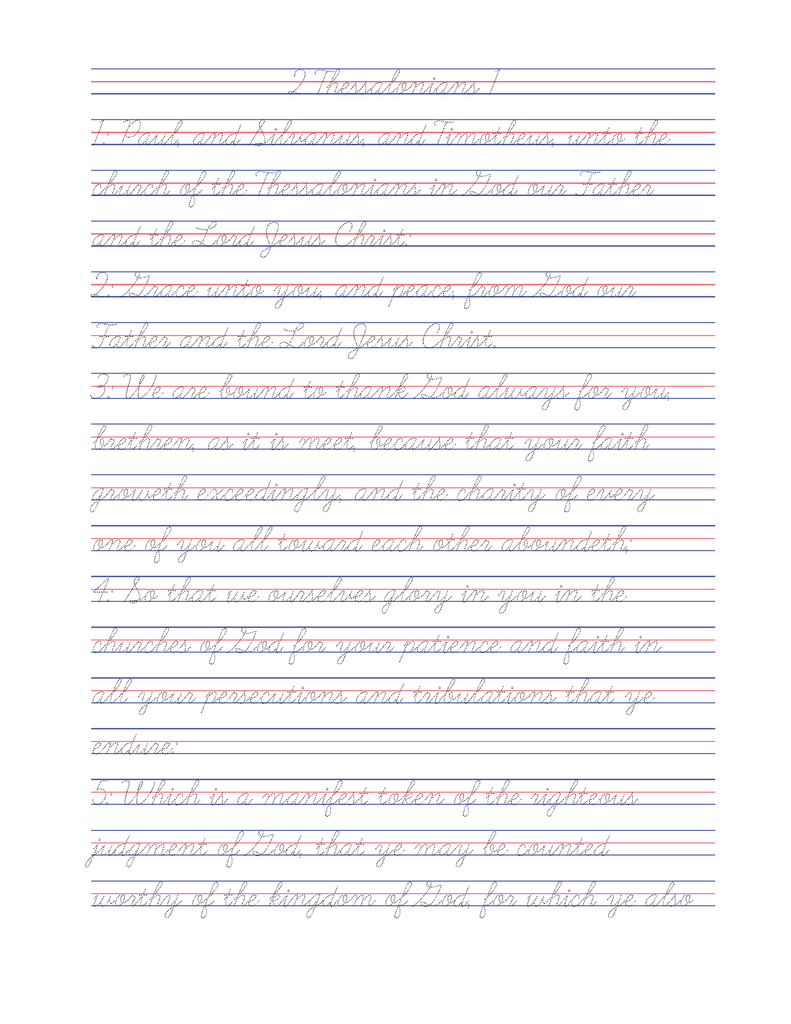 2 Thessalonians 1
1: Paul, and Silvanus, and Timotheus, unto the
church of the Thessalonians in God our Father
and the Lord Jesus Christ:
2: Grace unto you, and peace, from God our
Father and the Lord Jesus Christ.
3: We are bound to thank God always for you,
brethren, as it is meet, because that your faith
groweth exceedingly, and the charity of every
one of you all toward each other aboundeth;
4: So that we ourselves glory in you in the
churches of God for your patience and faith in
all your persecutions and tribulations that ye
endure:
5: Which is a manifest token of the righteous
judgment of God, that ye may be counted
worthy of the kingdom of God, for which ye also